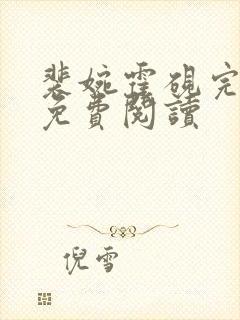 裴婉霍硯完
免費閱讀
倪雪